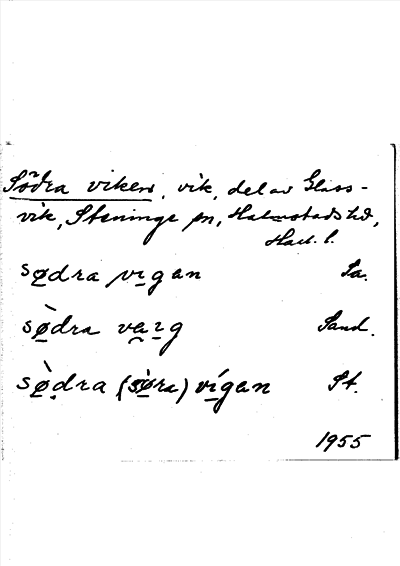 Södra viken, vik, del av Glass-
vik, Steninge sn, Halmstads hd,
Hall. l.
sødra vigan Sa.
sø̀dra vaıg Sand.
sø̀dra (sø̀ra) vígan St.
1955